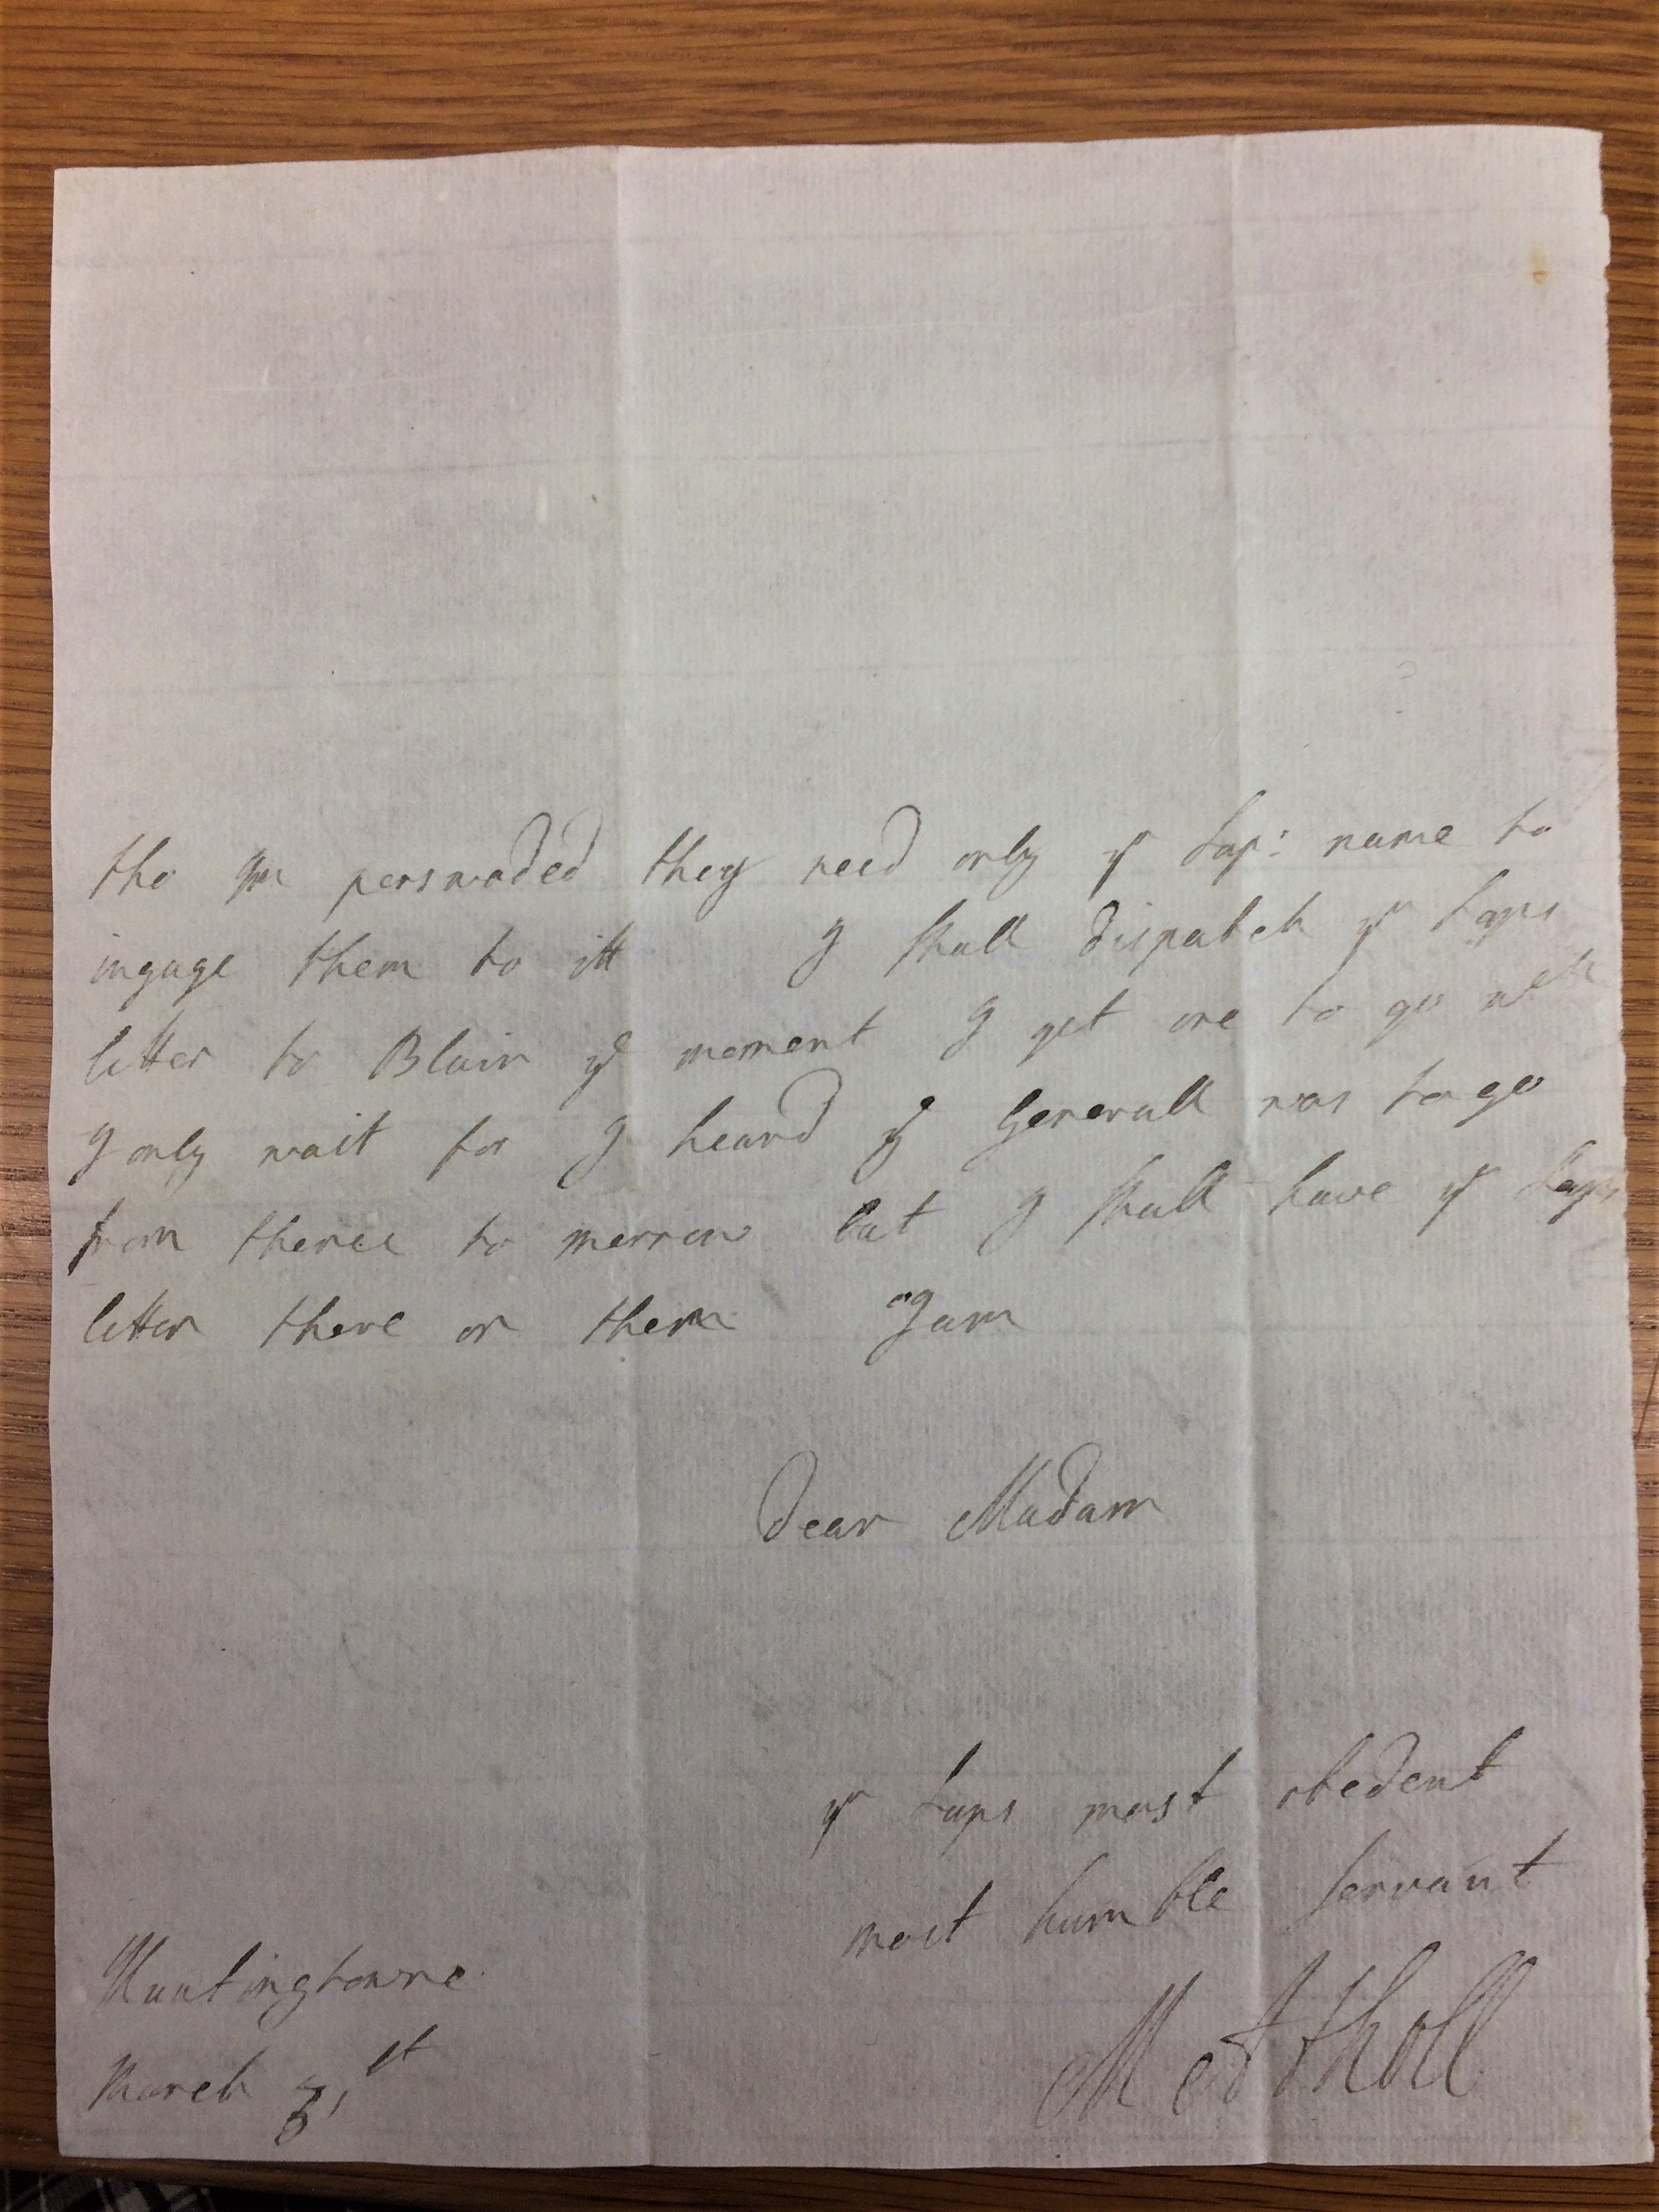 tho I'm perswaded they need only yr Laps: name to
ingage them to itt I shall dispatch yr Laps
letter to Blair ye moment I get one to go wth
I only wait for I heard ye Generall was to go
from thence to morrow but I shall have yr Laps
letter there or then I am
Dear Madam
yr Laps most obedent
most humble servant
M Atholl
Huntingtowre
March 31st